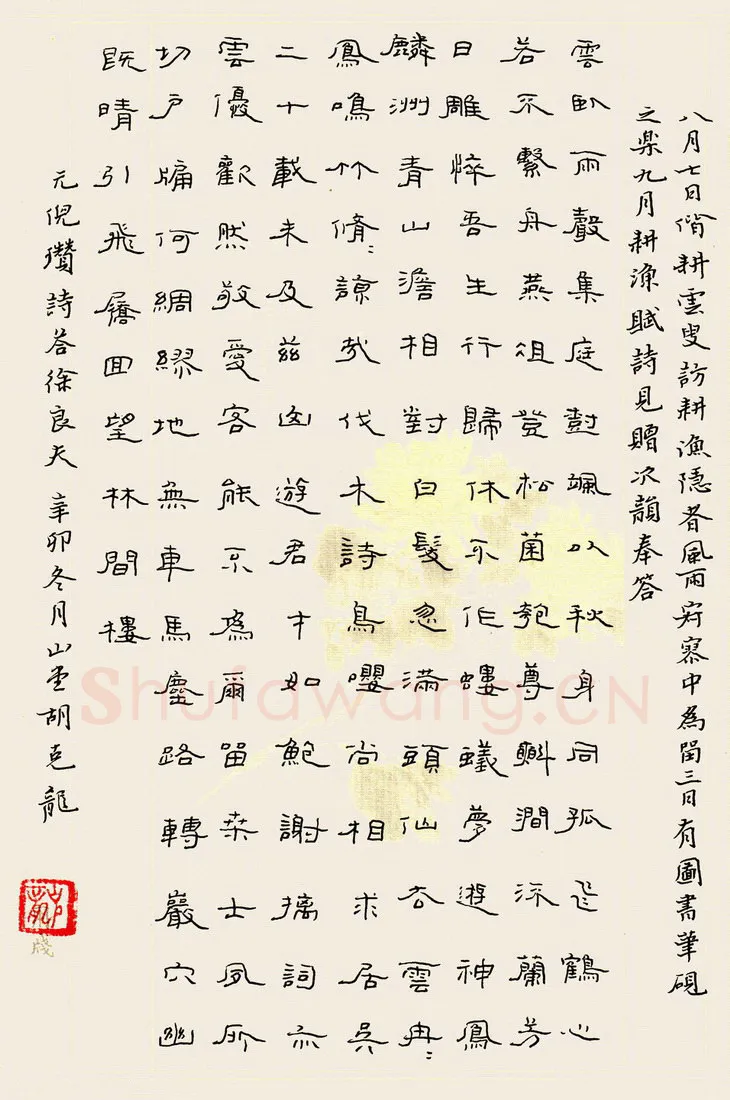 八月七日偕耕雲叟訪耕漁隱者風雨寂寥中為留三日有圖書筆硯
之樂九月耕漁賦詩見贈次韻奉答
雲臥雨聲集庭樹颯以秋身同孤飛鶴心
若不繫舟燕俎登松菌匏尊斟澗流蘭芳
日雕悴吾生行歸休不作螻蟻夢遊神鳳
麟洲青山澹相對白髮忽滿頭仙衣雲冉〻
鳳鳴竹脩〻諒哉伐木詩鳥嚶尚相求居吳
二十載未及茲遊君才如鮑謝摛詞亦
雲優歡然敬愛客能不為爾留桑士夙所
切戶牖何綢繆地無車馬塵路轉巖穴幽
既晴引飛屩回望林間樓
元倪瓚詩答徐良夫 辛卯冬月山堂胡克龍
Shufawang.CN